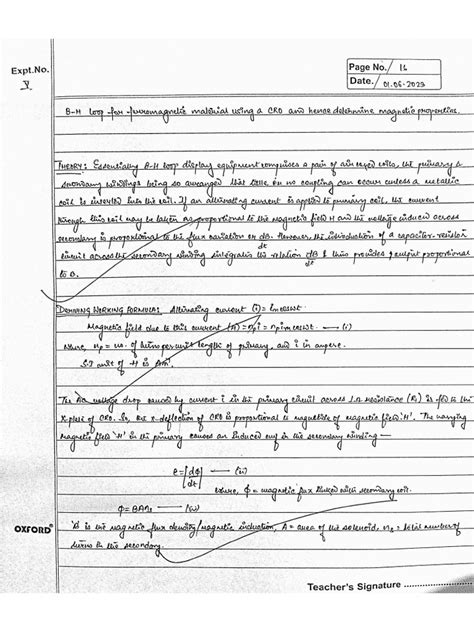 Expt.No. V
Page No. 16
Date. 01.06.2023
B-H loop for ferromagnetic material using a CRO and hence determine magnetic properties.
THEORY: Essentially B-H loop display equipment comprises a pair of air cored coils, the primary &
secondary windings being so arranged that little or no coupling can occur unless a metallic
coil is inserted into the coil. If an alternating current is applied to primary coil, the current
through this coil may be taken as proportional to the magnetic field H and the voltage induced across
secondary is proportional to the flux variation or dB/dt. However, the introduction of a capacitor-resistor
circuit across the secondary winding integrates the relation dB/dt & thus provides output proportional
to B.
WORKING FORMULA: Alternating current (i) = Imcosωt
Magnetic field due to this current (H) = npi = npimcosωt — (i)
where, np = no. of turns per unit length of primary, and i in ampere.
S.I unit of H is A/m.
The voltage drop caused by current i in the primary circuit across resistance (R1) is fed to the
X-plate of CRO. So, the X-deflection of CRO is proportional to magnitude of magnetic field 'H'. The varying
magnetic field 'H' in the primary causes an induced emf in the secondary winding —
e = |dΦ/dt| — (ii)
where, Φ = magnetic flux linked with secondary coil.
Φ = BAns — (iii)
B is the magnetic flux density/magnetic induction, A = area of the solenoid, ns = total number of
turns in the secondary.
OXFORD®
Teacher's Signature